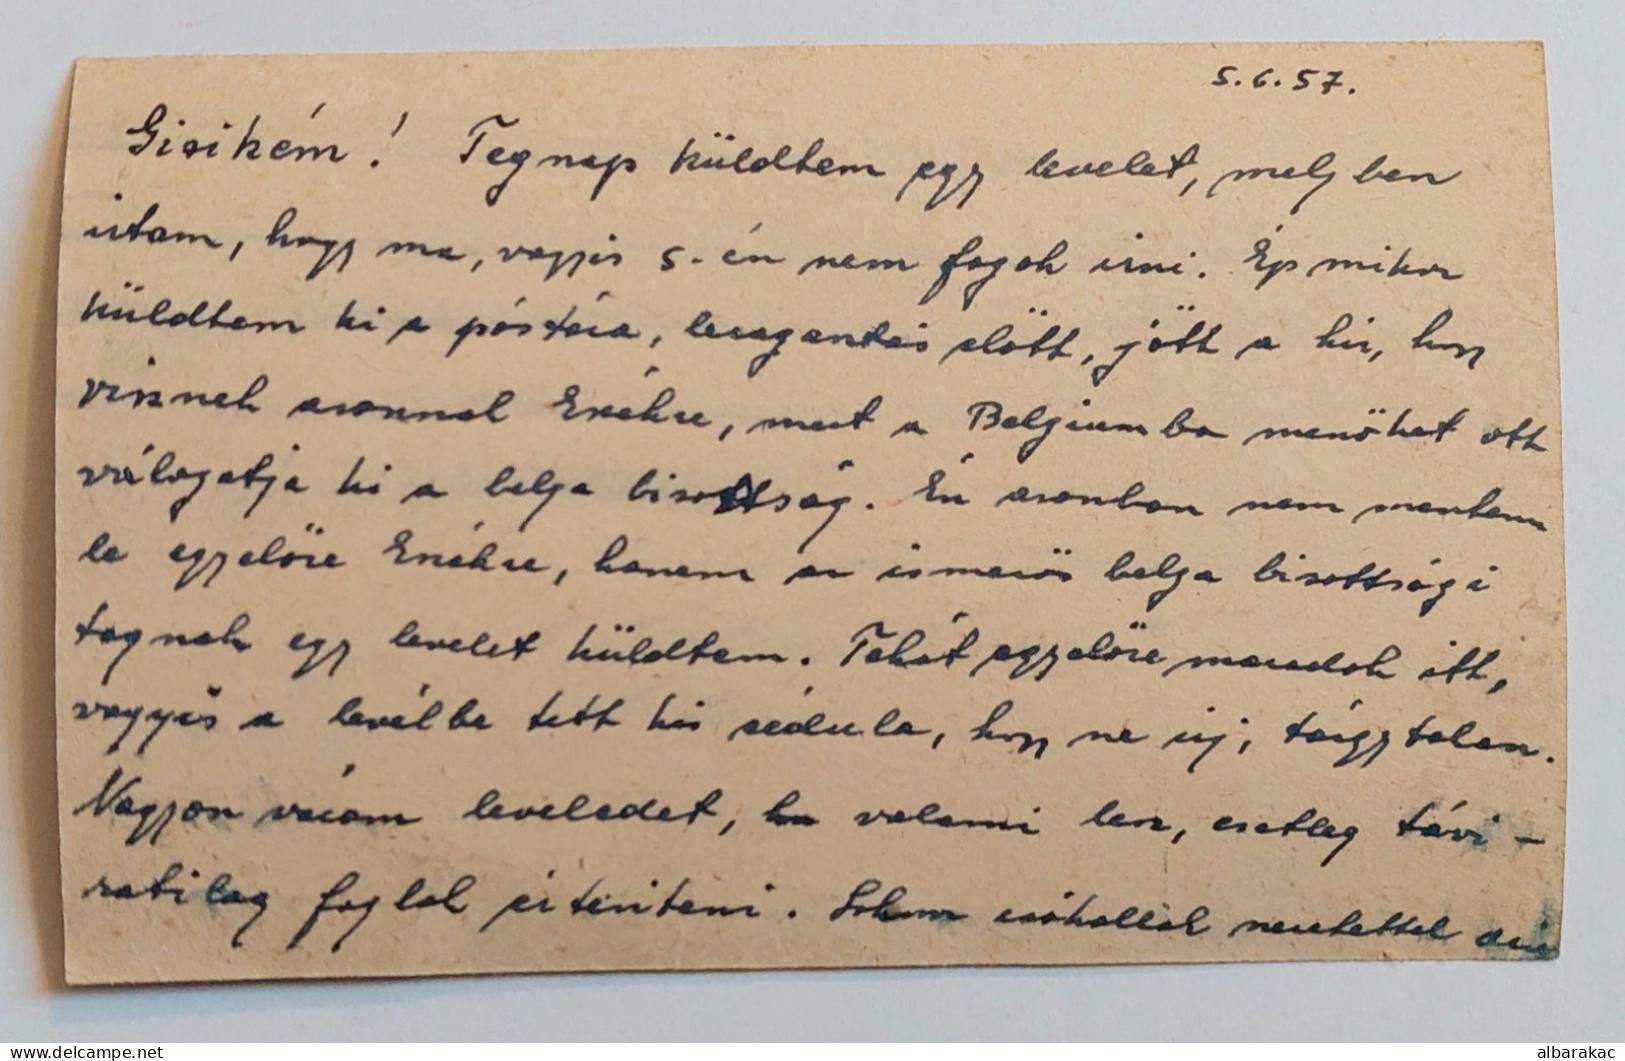 5.6.57.
Gizikém! Tegnap küldtem egy levelet, melyben
irtam, hogy ma, vagyis 5.-én nem fogok irni. Ép mikor
küldtem ki a póstára, leragasztás előtt, jött a hir, hogy
visznek azonnal be, mert a Belgiumba menőket ott
válogatja ki a belga bizottság. Én azonban nem mentem
le egyelőre, hanem az ismerős belga bizottsági
tagnak egy levelet küldtem. Tehát egyelőre maradok itt,
vagyis a levélbe tett kis cédula, hogy ne irj, tárgytalan.
Nagyon várom leveledet, ha valami lesz, esetleg távi-
ratilag foglak értesiteni. Sokszor csókollak szeretettel
albarakac